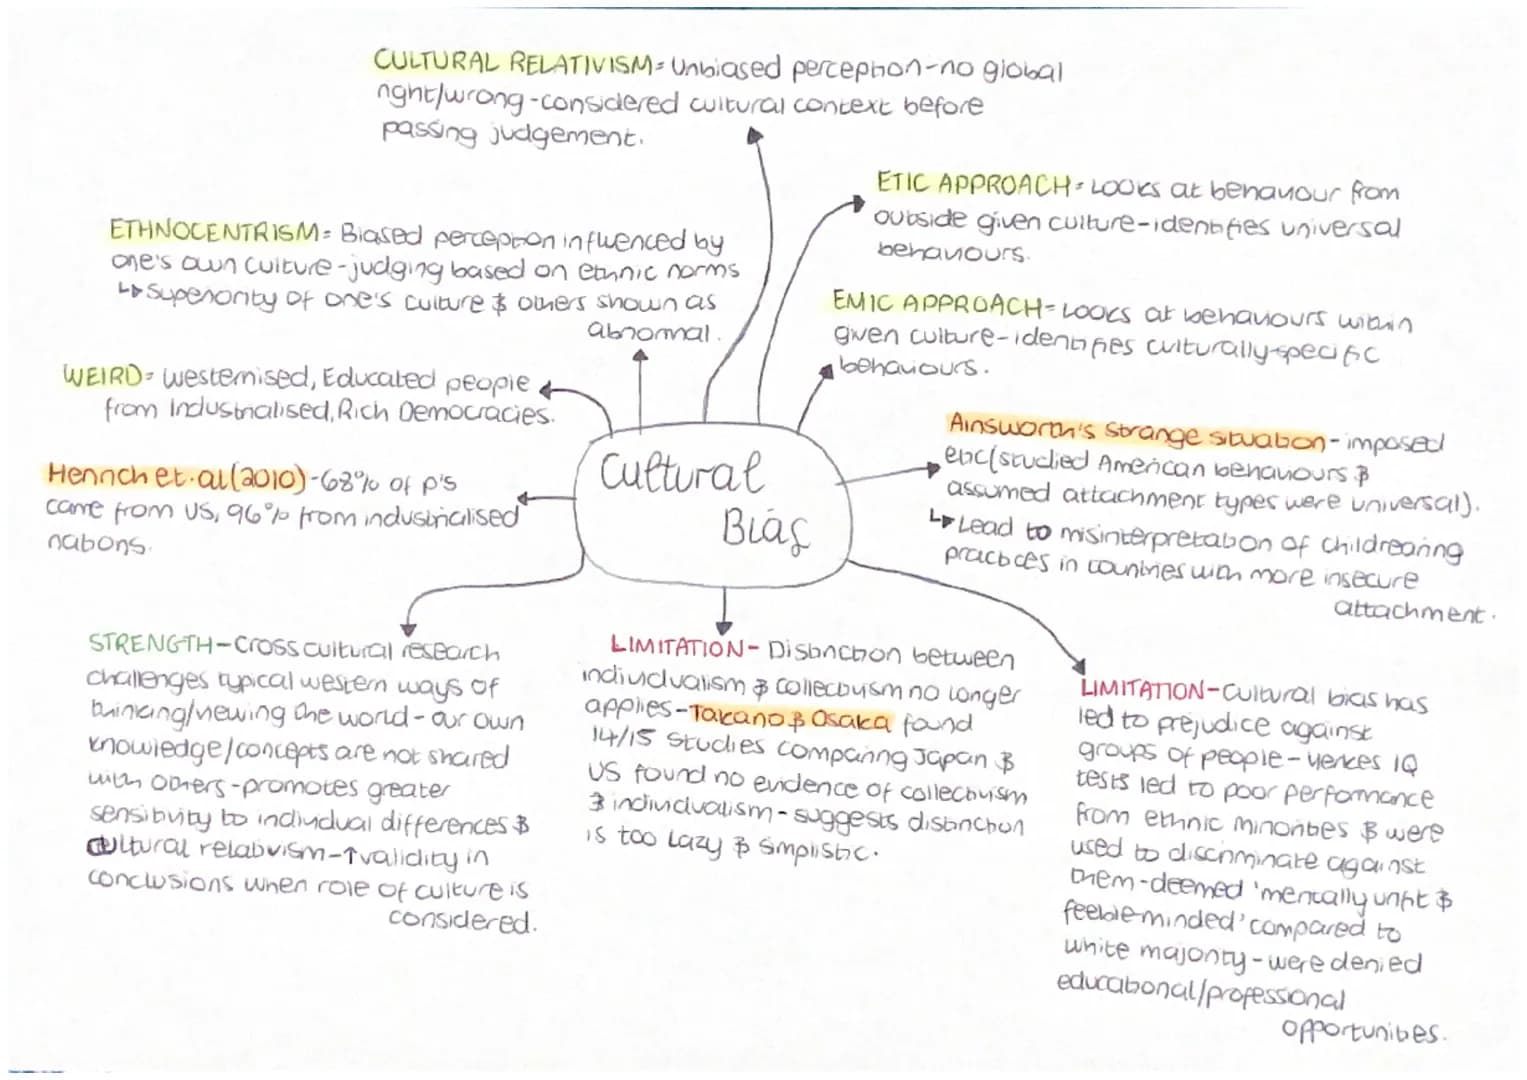 CULTURAL RELATIVISM = Unbiased perception - no global
right/wrong - considered cultural context before
passing judgement.
ETIC APPROACH = Looks at behaviour from
outside given culture - identifies universal
behaviours.
ETHNOCENTRISM = Biased perception influenced by
one's own culture - judging based on ethnic norms
↳ Superiority of one's culture & others shown as
abnormal.
EMIC APPROACH = Looks at behaviours within
given culture - identifies culturally-specific
behaviours.
WEIRD = Westernised, Educated people
from Industrialised, Rich Democracies.
Ainsworth's Strange situation - imposed
etic (studied American behaviours &
assumed attachment types were universal).
↳ Lead to misinterpretation of childrearing
practices in countries with more insecure
attachment.
Henrich et.al (2010) - 68% of p's
came from US, 96% from industrialised
nations.
Cultural
Bias
STRENGTH - Cross cultural research
challenges typical western ways of
thinking/viewing the world - our own
knowledge/concepts are not shared
with others - promotes greater
sensitivity to individual differences &
cultural relativism - ↑ validity in
conclusions when role of culture is
considered.
LIMITATION - Distinction between
individualism & collectivism no longer
applies - Takano & Osaka found
14/15 studies comparing Japan &
US found no evidence of collectivism
& individualism - suggests distinction
is too lazy & simplistic.
LIMITATION - Cultural bias has
led to prejudice against
groups of people - Yerkes IQ
tests led to poor performance
from ethnic minorities & were
used to discriminate against
them - deemed 'mentally unfit &
feeble minded' compared to
white majority - were denied
educational/professional
opportunities.